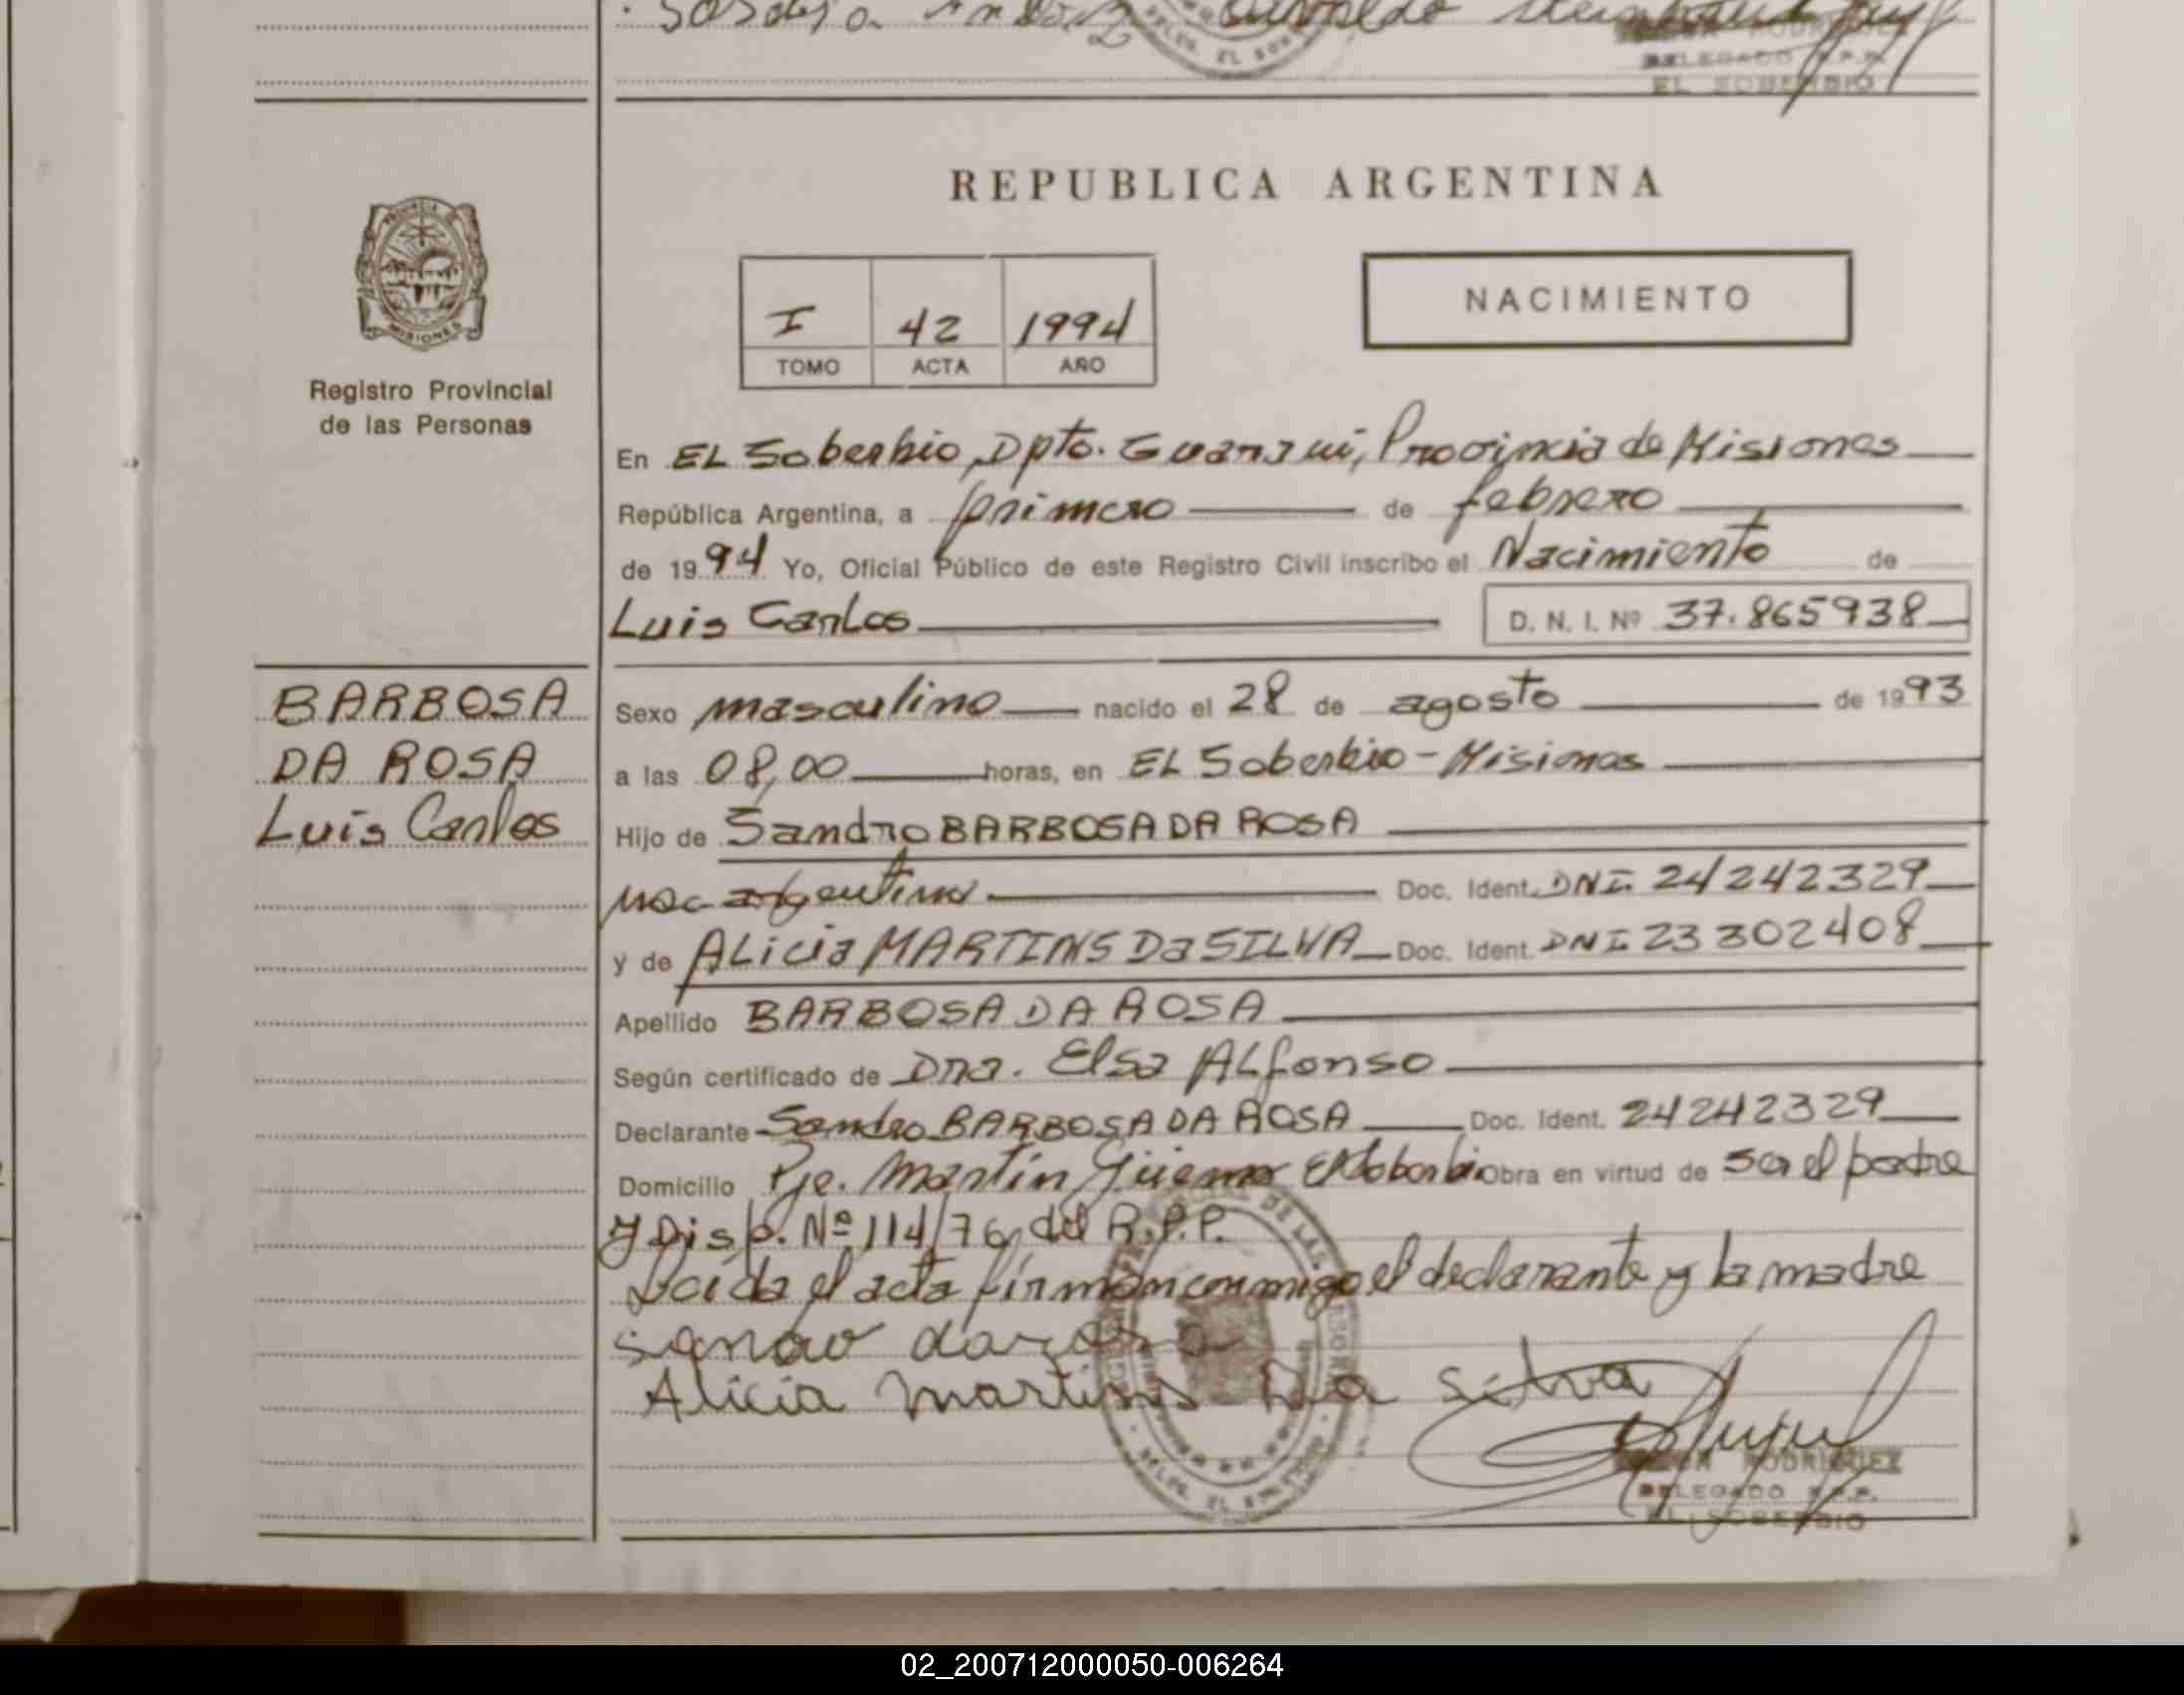 DELEGADO R.P.P.
EL SOBERBIO
REPUBLICA ARGENTINA
PROVINCIA DE
MISIONES
I 42 1994
TOMO ACTA AÑO
NACIMIENTO
Registro Provincial
de las Personas
En EL Soberbio, Dpto. Guaraní, Provincia de Misiones
República Argentina, a primero de febrero
de 1994 Yo, Oficial Público de este Registro Civil inscribo el Nacimiento de
Luis Carlos D. N. I. Nº 37.865938
BARBOSA
DA ROSA
Luis Carlos
Sexo masculino nacido el 28 de agosto de 1993
a las 08,00 horas, en EL Soberbio - Misiones
Hijo de Sandro BARBOSA DA ROSA
nac argentina Doc. Ident. DNI. 24242329
y de ALicia MARTINS Da SILVA Doc. Ident. DNI 23302408
Apellido BARBOSA DA ROSA
Según certificado de Dra. Elsa ALfonso
Declarante Sandro BARBOSA DA ROSA Doc. Ident. 24242329
Domicilio Pje. Martín Güemes El Soberbio Obra en virtud de ser el padre
y Disp. Nº 114/76 del R.P.P.
Leída el acta firman conmigo el declarante y la madre
darosa
Alicia Martins Da Silva
RODRIGUEZ
DELEGADO R.P.P.
EL SOBERBIO
02_200712000050-006264